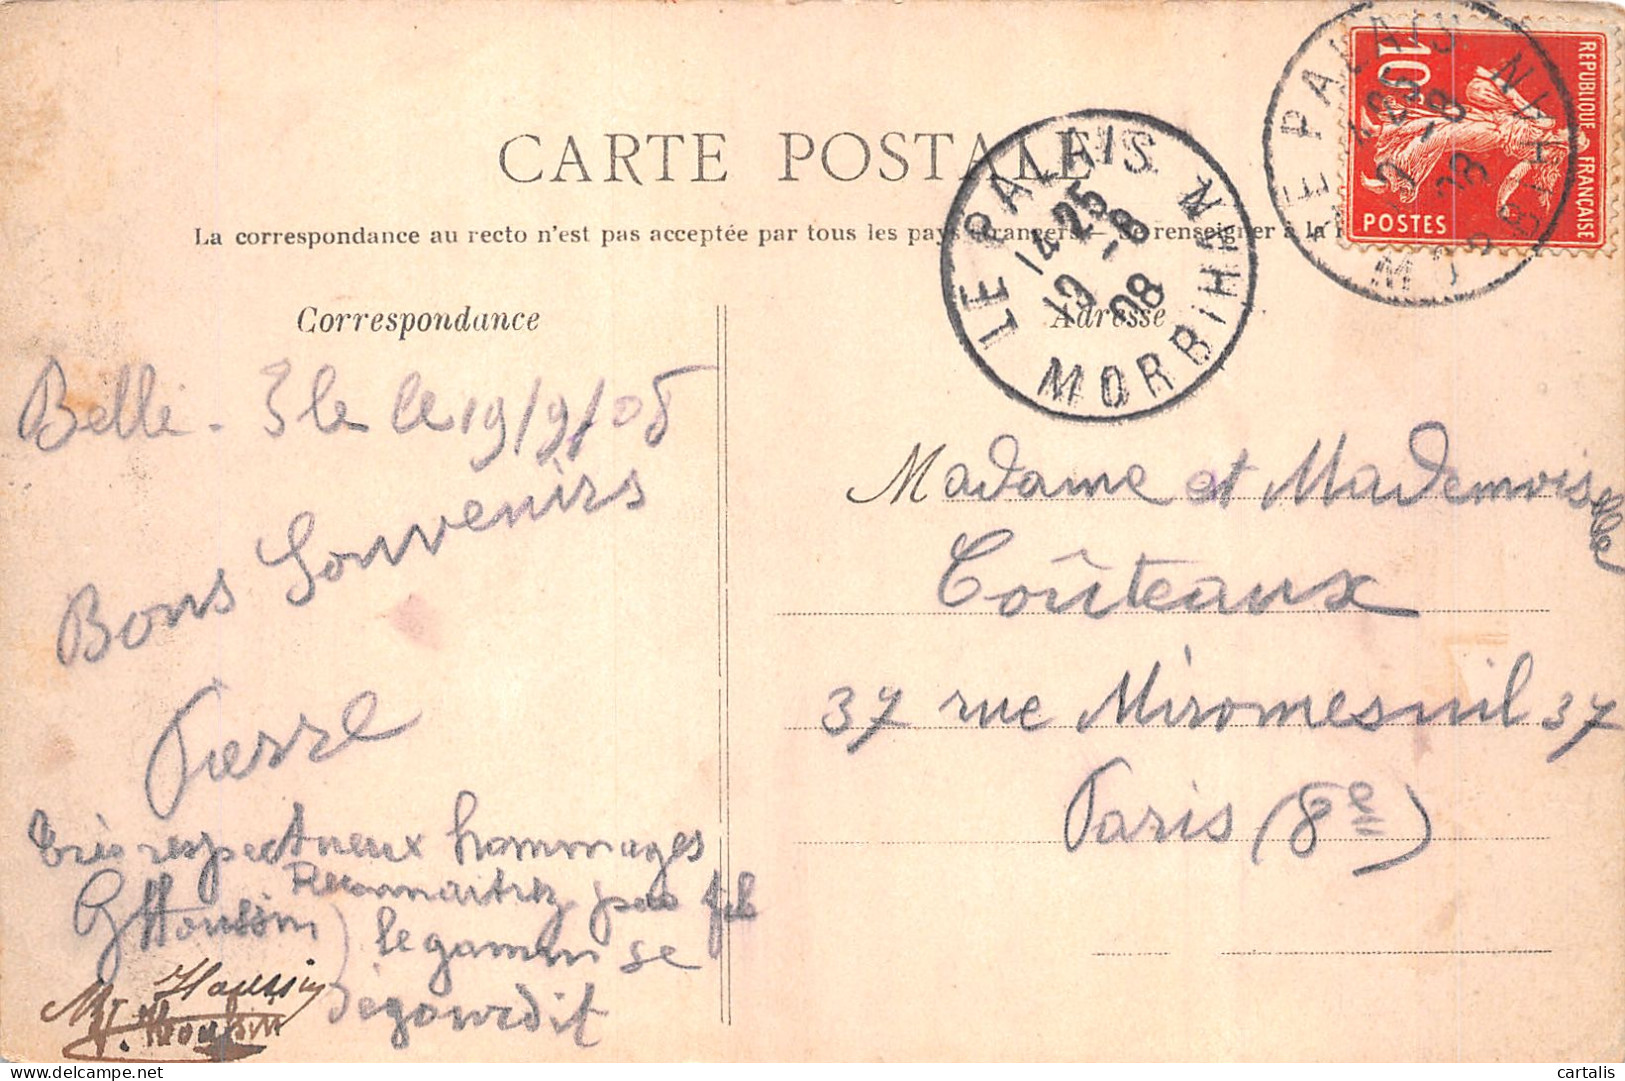 CARTE POSTALE
La corrrespondance au recto n'est pas acceptée par tous les pays étrangers — Se renseigner à la
Correspondance
Adresse
LE PALAIS MORBIHAN
14 25
19 -8
08
LE PALAIS MORBIHAN
14 25
-8
08
REPUBLIQUE FRANÇAISE
10c
POSTES
Belle - Ile le 19/9/08
Bons Souvenirs
Pierre
très respectueux hommages
GHoussin
Reconnaitrez pas
le gamin se
dégourdit
Houssin
Madame et Mademoiselle
Coûteaux
37 rue Miromesnil 37
Paris (8e)
cartalis